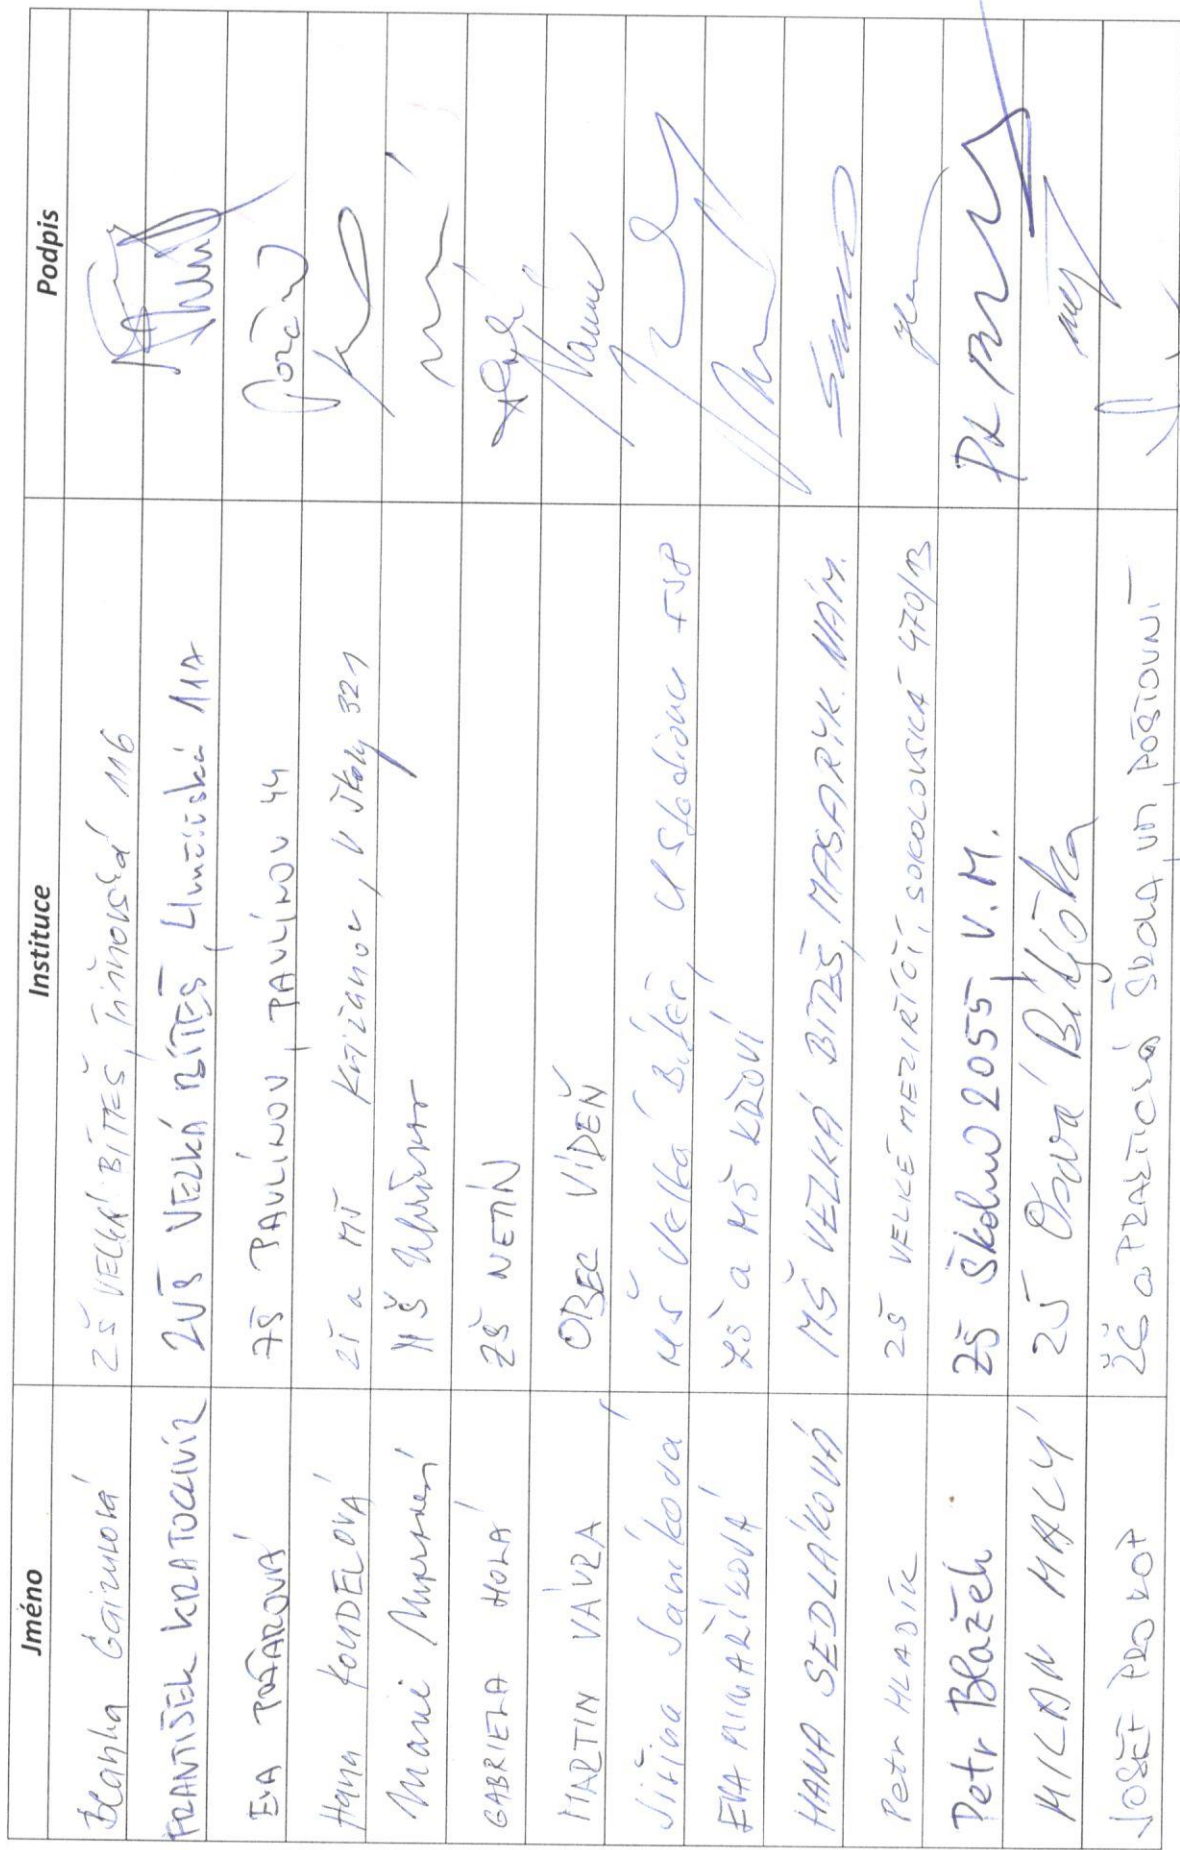 Jméno Instituce Podpis
Blanka Gaizurová ZŠ VELKÁ BÍTEŠ, Tišnovská 116
FRANTIŠEK KRATOCHVÍL ZUŠ VELKÁ BÍTEŠ, Hrnčířská 117
EVA POŽÁROVÁ ZŠ PAVLÍNOV, PAVLÍNOV 44
Hana KOUDELOVÁ ZŠ a MŠ Křižanov, U Školy 321
Marie MŠ
GABRIELA HOLÁ ZŠ NETÍN
MARTIN VÁVRA OBEC VÍDEŇ
Jiřina Janíková MŠ Velká Bíteš, U Stadionu 538
EVA ZŠ a MŠ KŘOVÍ
HANA SEDLÁKOVÁ MŠ VELKÁ BÍTEŠ, MASARYK. NÁM.
Petr HLADÍK ZŠ VELKÉ MEZIŘÍČÍ, SOKOLOVSKÁ 470/13
Petr Blažek ZŠ Školní 2055, V.M.
MILAN MALÝ ZŠ Osová Bítýška
JOSEF PROKOP ZŠ a PRAKTICKÁ ŠKOLA, VM, POŠTOVNÍ